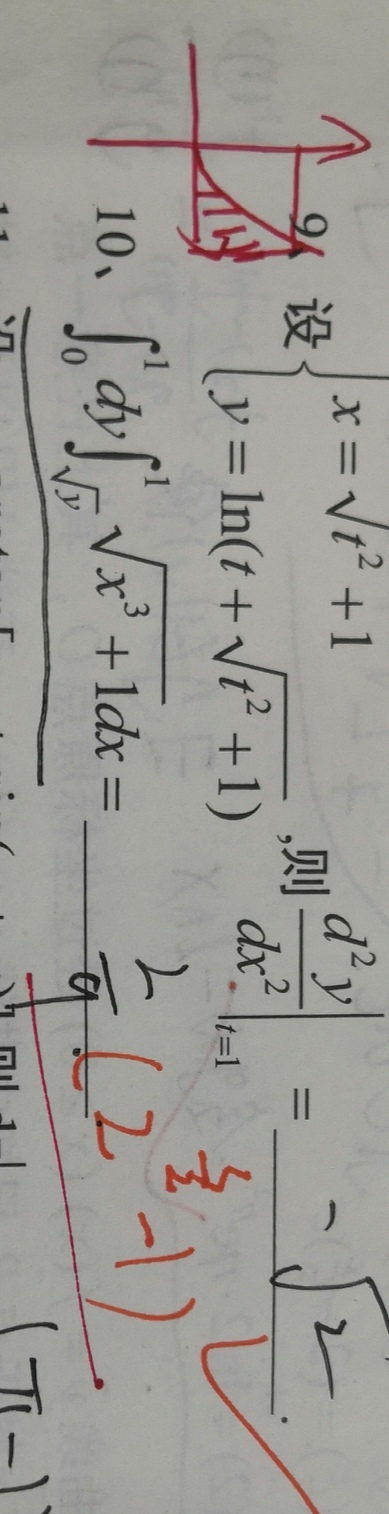 9、设 { x = √(t² + 1)
y = ln(t + √(t² + 1)) ,则 d²y/dx² |t=1 = -√2 .
10、∫₀¹ dy ∫_√y¹ √(x³ + 1) dx = 2/9 (2^(3/2) - 1) .